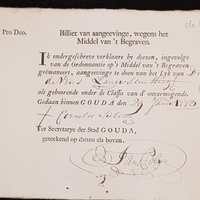 Pro Deo.
Billiet van aangeevinge, wegens het
Middel van 't Begraven.
Ik ondergeschreve verklaare by deezen, ingevolge
van de Ordonnantie op 't Middel van 't Begraven
geëmaneert, aangeevinge te doen van het Lyk van
als gehoorende onder de Classis van d' onvermogende.
Gedaan binnen GOUDA den 29 Juni 1773
Cornelis
Ter Secretarye der Stad GOUDA,
geteekend op datum als boven.